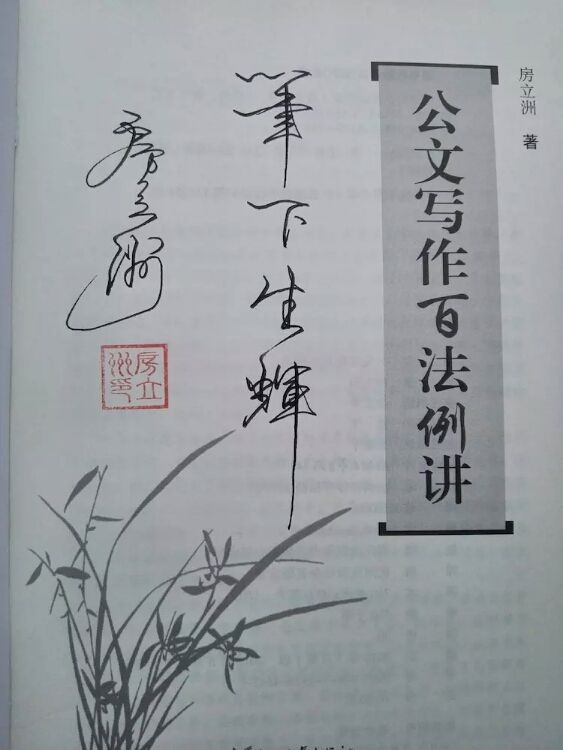 房立洲 著
公文写作百法例讲
筆下生輝
房立洲
房立洲印